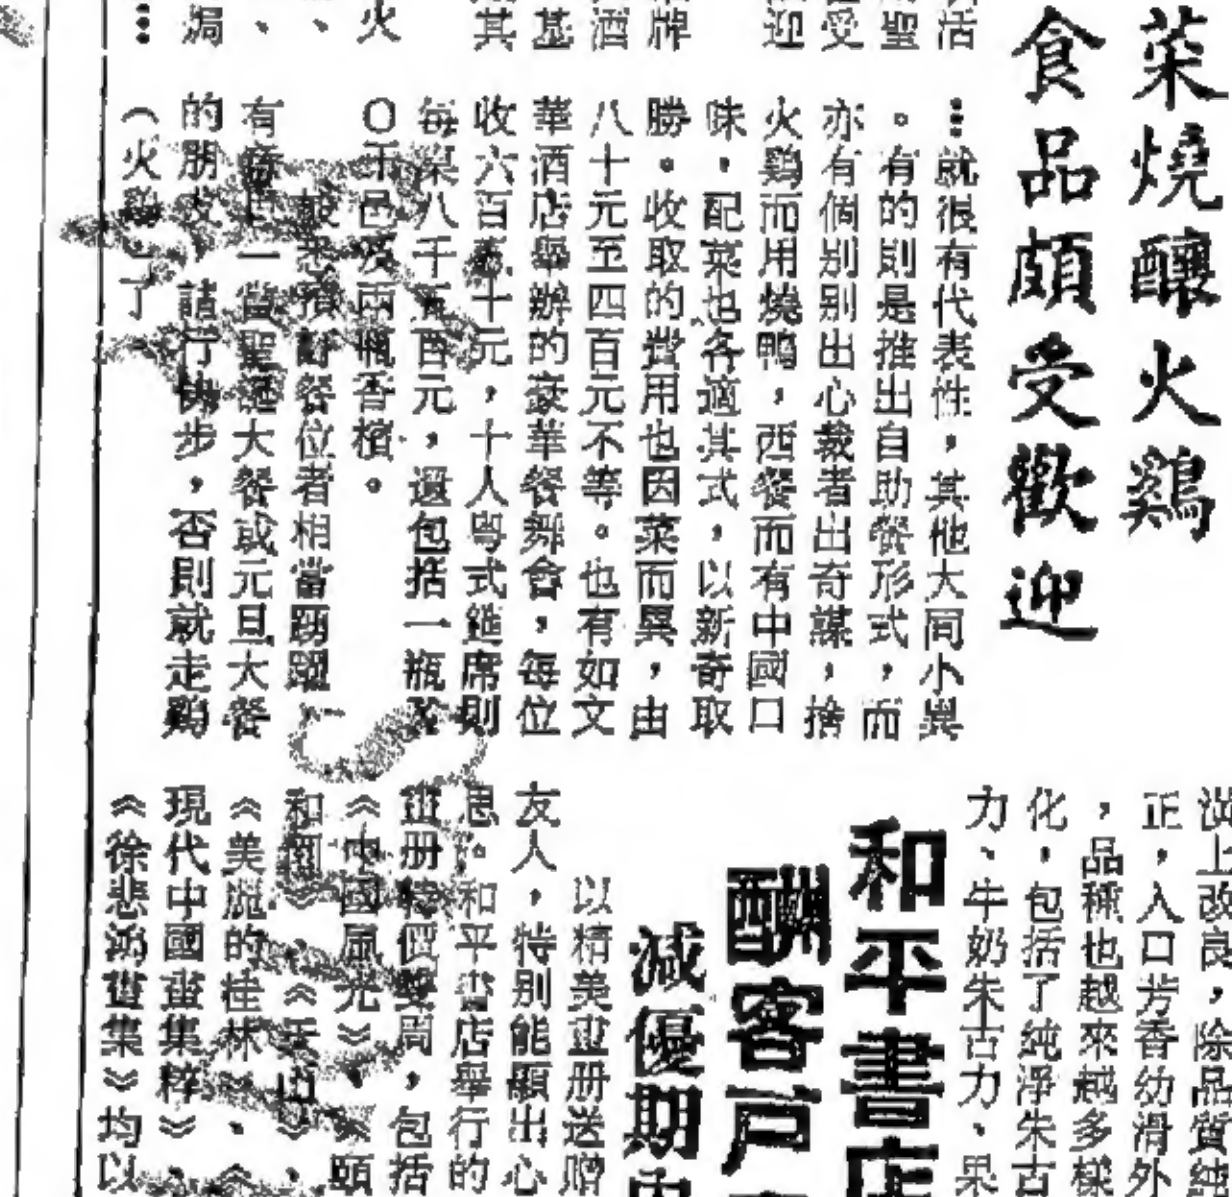 菜燒釀火鷄
食品頗受歡迎
活
聖
受
迎
牌
酒
基
其
火
、
、
焗
…
…就很有代表性，其他大同小異
。有的則是推出自助餐形式，而
亦有個別別出心裁者出奇謀，捨
火鷄而用燒鴨，西餐而有中國口
味，配菜也各適其式，以新奇取
勝。收取的費用也因菜而異，由
八十元至四百元不等。也有如文
華酒店舉辦的豪華餐舞會，每位
收六百 十元，十人粵式筵席則
每桌八千 百元，還包括一瓶X
O 邑及兩瓶香檳。
來預訂餐位者相當踴躍，
有 一嘗聖誕大餐或元旦大餐
的朋友 請行快步，否則就走鷄
（火鷄）了
上改良，除品質純
正，入口芳香幼滑外
，品種也越來越多樣
化，包括了純淨朱古
力、牛奶朱古力、果
和平書店
酬客戶
減優期
以精美畫册送贈
友人，特別能顯出心
息。和平書店舉行的
畫册特價雙周，包括
《中國風光》、 頤
和園》、《天 》、
《美麗的桂林》、《
現代中國畫集粹》、
《徐悲鴻畫集》均以